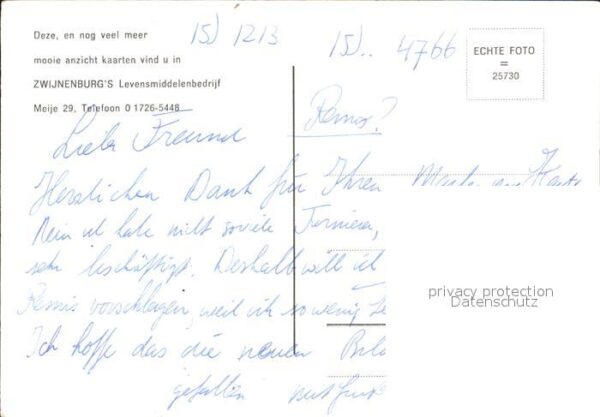 Deze, en nog veel meer
mooie anzicht kaarten vind u in
ZWIJNENBURG'S Levensmiddelenbedrijf
Meije 29, Telefoon 01726-5448
15) 1213
15).. 4766
ECHTE FOTO
=
25730
Remis?
Lieber Freund
Herzlichen Dank für Ihren
Nein ich habe nicht soviele Turniere,
sehr beschäftigt. Deshalb will ich
Remis vorschlagen, weil ich so wenig
Ich hoffe das die neuen
gefallen
privacy protection
Datenschutz